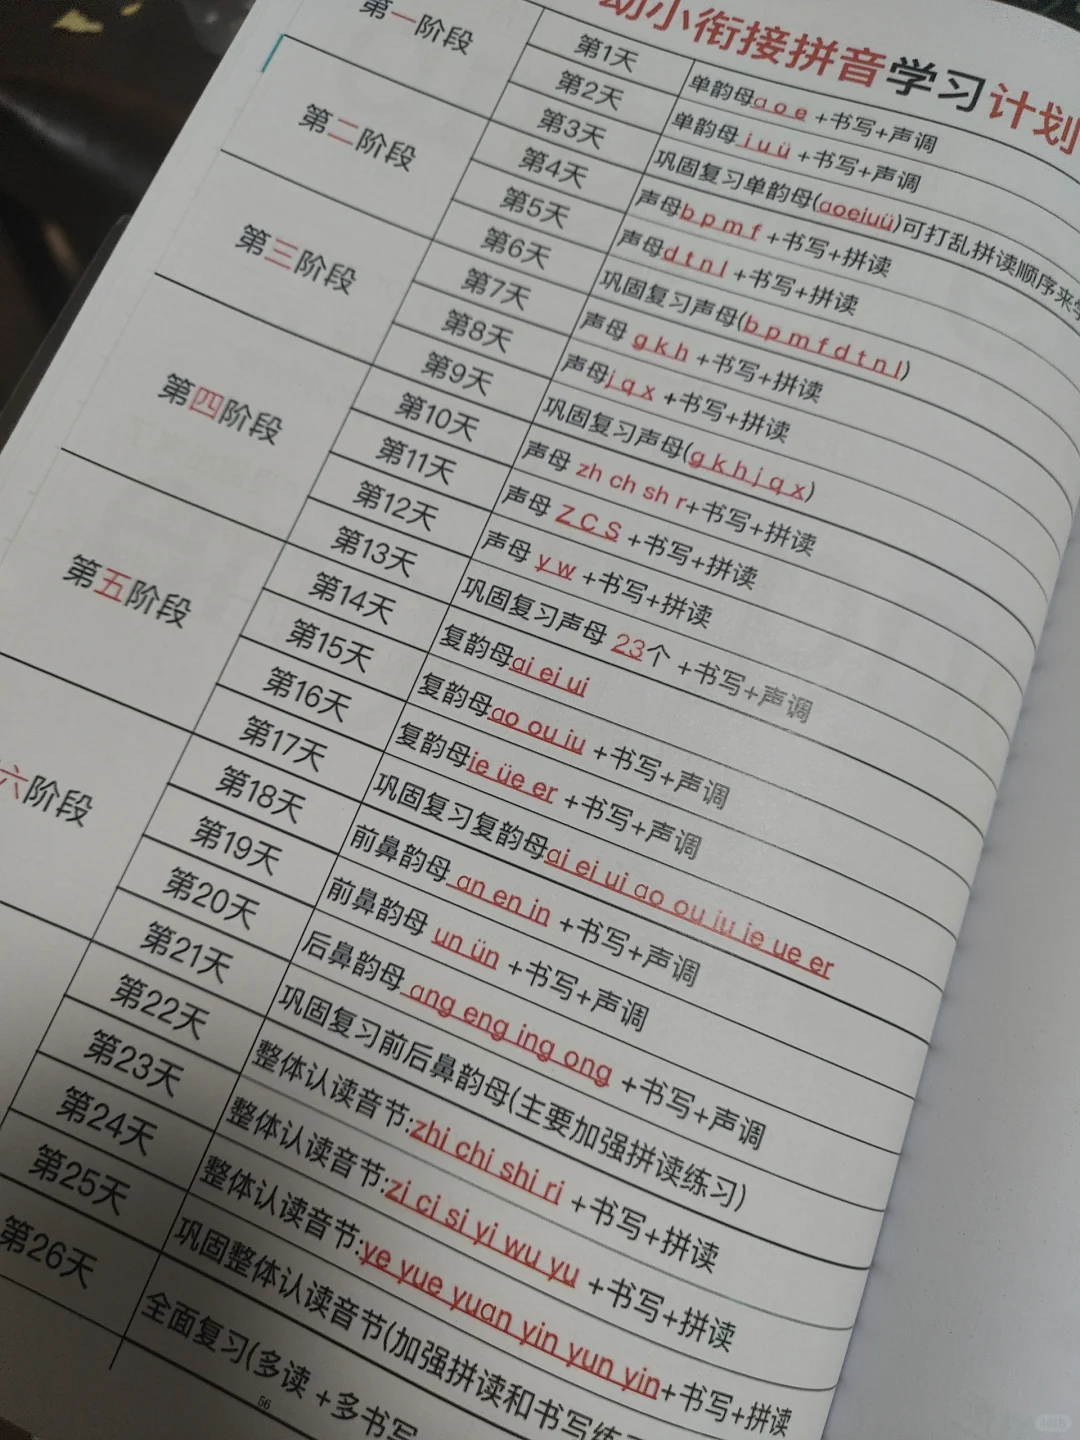 幼小衔接拼音学习计划
第一阶段
第1天 单韵母a o e +书写+声调
第2天 单韵母 i u ü +书写+声调
第3天 巩固复习单韵母(aoeiuü)可打乱拼读顺序来
第二阶段
第4天 声母b p m f +书写+拼读
第5天 声母d t n l +书写+拼读
第6天 巩固复习声母(b p m f d t n l)
第三阶段
第7天 声母 g k h +书写+拼读
第8天 声母j q x +书写+拼读
第9天 巩固复习声母(g k h j q x)
第四阶段
第10天 声母 zh ch sh r+书写+拼读
第11天 声母 z c s +书写+拼读
第12天 声母 y w +书写+拼读
第13天 巩固复习声母 23个 +书写+声调
第五阶段
第14天 复韵母ai ei ui
第15天 复韵母ao ou iu +书写+声调
第16天 复韵母ie üe er +书写+声调
第17天 巩固复习复韵母ai ei ui ao ou iu ie ue er
六阶段
第18天 前鼻韵母 an en in +书写+声调
第19天 前鼻韵母 un ün +书写+声调
第20天 后鼻韵母 ang eng ing ong +书写+声调
第21天 巩固复习前后鼻韵母(主要加强拼读练习)
第22天 整体认读音节:zhi chi shi ri +书写+拼读
第23天 整体认读音节:zi ci si yi wu yu +书写+拼读
第24天 整体认读音节:ye yue yuan yin yun yin+书写+拼读
第25天 巩固整体认读音节(加强拼读和书写练
第26天 全面复习(多读 +多书写
56